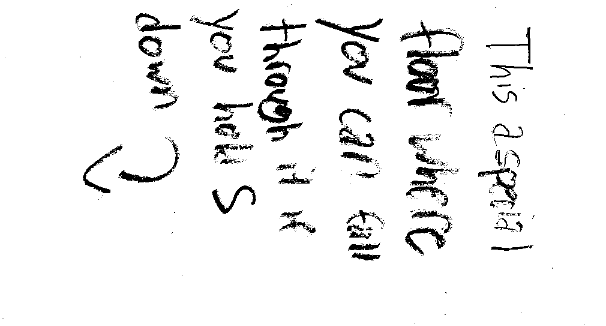 This a special
floor where
you can fall
through it if
you hold S
down